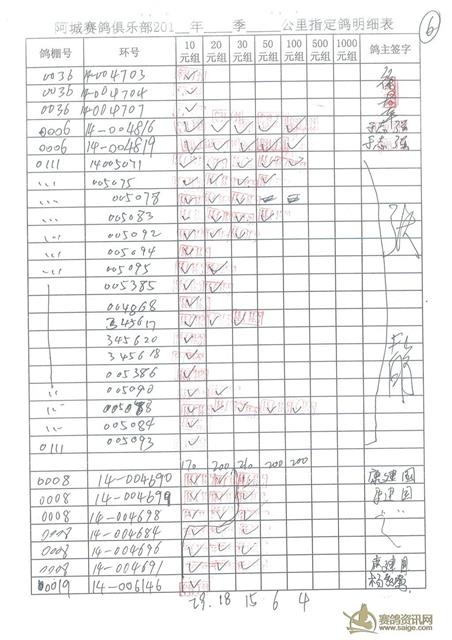 阿城赛鸽俱乐部201__年____季____公里指定鸽明细表
6
鸽棚号 环号 10元组 20元组 30元组 50元组 100元组 500元组 1000元组 鸽主签字
0036 14-004703 ✓
0036 14-004704 ✓
0036 14-004707 ✓
0006 14-004816 ✓ ✓ ✓ ✓ ✓ 于志强
0006 14-004819 ✓ ✓ ✓ ✓ ✓ 于志强
0111 14005071 ✓ ✓ ✓ ✓ ✓
005075 ✓ ✓ ✓ ✓
005078 ✓ ✓ ✓
005083 ✓ ✓ ✓ ✓ 张
005092 ✓ ✓ ✓
005094 ✓
005095 ✓ ✓
005385 ✓ ✓
004868 ✓
345617 ✓ ✓ ✓
345620 ✓
345618 ✓
005386 ✓
005090 ✓ ✓
005088 ✓ ✓ ✓ ✓ ✓
005084 ✓
0111 005093 ✓
200 200 200
0008 14-004690 ✓ ✓ ✓ 康建国
0008 14-004699 ✓ ✓ ✓ 康建国
0008 14-004698 ✓ ✓ ✓
0008 14-004684 ✓ ✓ ✓
0008 14-004696 ✓ ✓ ✓
0008 14-004691 ✓ ✓ ✓ 康建国
0019 14-006146 ✓
29 18 15 6 4
赛鸽资讯网
www.saige.com